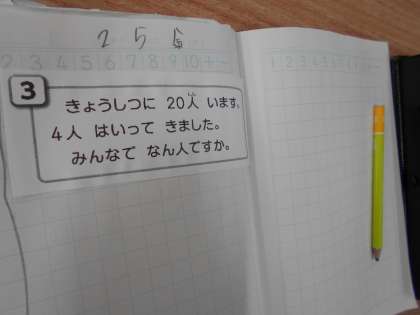 2 5 6
2 3 4 5 6 7 8 9 10 + -
3
きょうしつに 20人 います。
4人 はいって きました。
みんなで なん人ですか。